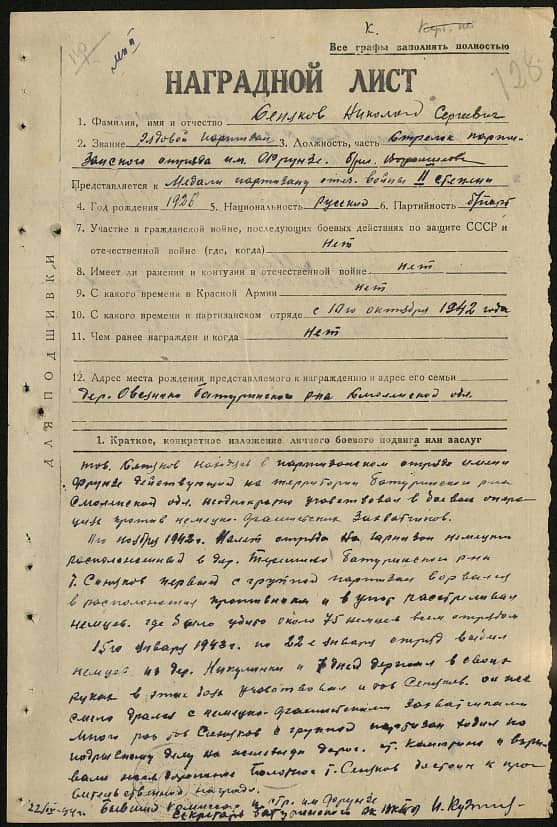 К.
Все графы заполнять полностью
128
НАГРАДНОЙ ЛИСТ
1. Фамилия, имя и отчество Сеняков Николай Сергеевич
2. Звание Рядовой партизан 3. Должность, часть Стрелок парти-
занского отряда им. Фрунзе. бриг.
Представляется к Медали партизану отеч. войны II степени
4. Год рождения 1926 5. Национальность Русский 6. Партийность б/парт
7. Участие в гражданской войне, последующих боевых действиях по защите СССР и
отечественной войне (где, когда) Нет
8. Имеет ли ранения и контузии в отечественной войне нет
9. С какого времени в Красной Армии Нет
10. С какого времени в партизанском отряде с 10го октября 1942 года
11. Чем ранее награжден и когда Нет
12. Адрес места рождения представляемого к награждению и адрес его семьи
дер. Батуринского р-на Смоленской обл.
ДЛЯ ПОДШИВКИ
1. Краткое, конкретное изложение личного боевого подвига или заслуг
тов. Сеняков находясь в партизанском отряде имени
Фрунзе действующий на территории Батуринского р-на
Смоленской обл. неоднократно участвовал в боевых опера-
циях против немецко-фашистских захватчиков.
ноября 1942г. Налет отряда на гарнизон немецкий
расположенный в дер. Батуринского р-на
т. Сеняков первый с группой партизан ворвался
в расположения противника и в упор расстреливал
немцев. где было убито около 75 немцев всем отрядом
15го января 1943г. по 22е января отряд выбил
немцев из дер. Никулинки и 7 дней держал в своих
руках в этих боях участвовал и тов Сеняков. он
смело дрался с немецко-фашистскими захватчиками
Много раз тов Сеняков с группой партизан ходил по
подрывному делу на железную дорог. и взры-
вали железнодорожное т. Сеняков достоин к прав
вительственной награде.
Бывший комиссар п/отр. им Фрунзе
секретарь Батуринского